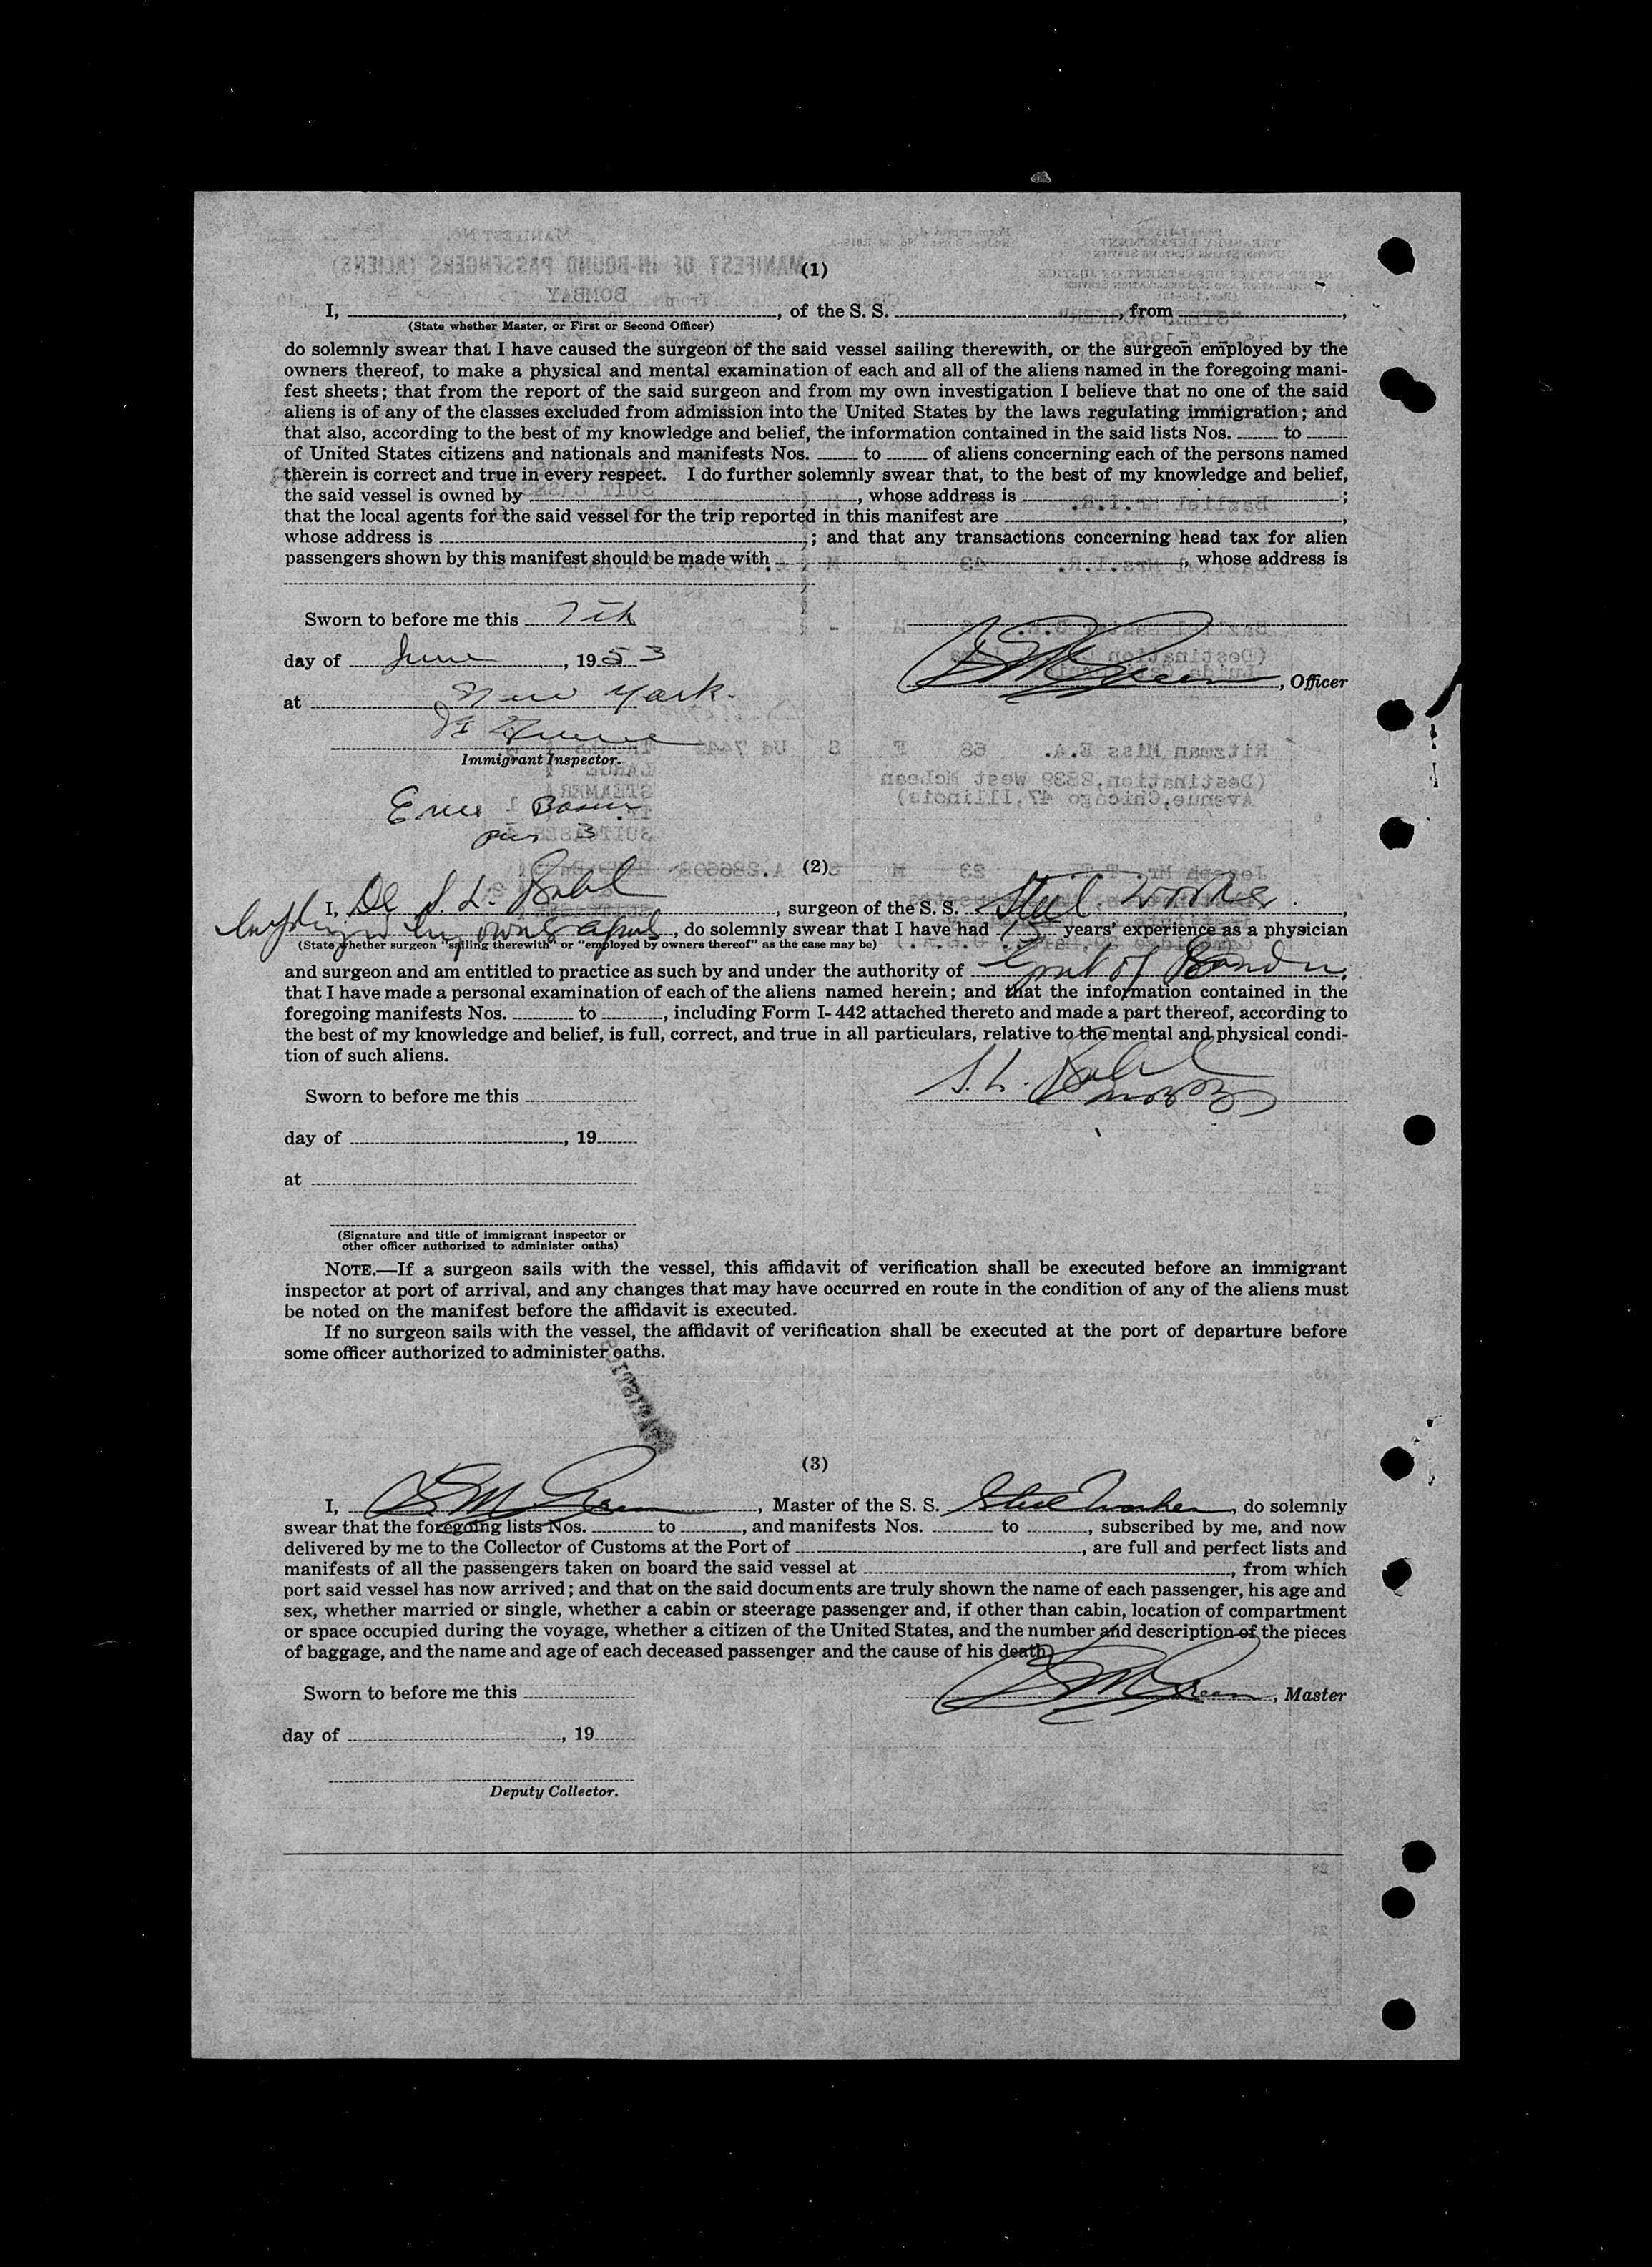 (1)
I, , of the S. S. , from ,
(State whether Master, or First or Second Officer)
do solemnly swear that I have caused the surgeon of the said vessel sailing therewith, or the surgeon employed by the
owners thereof, to make a physical and mental examination of each and all of the aliens named in the foregoing mani-
fest sheets; that from the report of the said surgeon and from my own investigation I believe that no one of the said
aliens is of any of the classes excluded from admission into the United States by the laws regulating immigration; and
that also, according to the best of my knowledge and belief, the information contained in the said lists Nos. to
of United States citizens and nationals and manifests Nos. to of aliens concerning each of the persons named
therein is correct and true in every respect. I do further solemnly swear that, to the best of my knowledge and belief,
the said vessel is owned by , whose address is ;
that the local agents for the said vessel for the trip reported in this manifest are ,
whose address is ; and that any transactions concerning head tax for alien
passengers shown by this manifest should be made with , whose address is
Sworn to before me this 7th
day of June , 1953
, Officer
at New York.
Immigrant Inspector.
(2)
I, S. L. , surgeon of the S. S. Steel Worker ,
by owners , do solemnly swear that I have had 15 years' experience as a physician
(State whether surgeon "sailing therewith" or "employed by owners thereof" as the case may be)
and surgeon and am entitled to practice as such by and under the authority of Govt of ,
that I have made a personal examination of each of the aliens named herein; and that the information contained in the
foregoing manifests Nos. to , including Form I-442 attached thereto and made a part thereof, according to
the best of my knowledge and belief, is full, correct, and true in all particulars, relative to the mental and physical condi-
tion of such aliens.
S. L.
Sworn to before me this
day of , 19
at
(Signature and title of immigrant inspector or
other officer authorized to administer oaths)
NOTE.—If a surgeon sails with the vessel, this affidavit of verification shall be executed before an immigrant
inspector at port of arrival, and any changes that may have occurred en route in the condition of any of the aliens must
be noted on the manifest before the affidavit is executed.
If no surgeon sails with the vessel, the affidavit of verification shall be executed at the port of departure before
some officer authorized to administer oaths.
(3)
I, Green , Master of the S. S. Steel Worker , do solemnly
swear that the foregoing lists Nos. to , and manifests Nos. to , subscribed by me, and now
delivered by me to the Collector of Customs at the Port of , are full and perfect lists and
manifests of all the passengers taken on board the said vessel at , from which
port said vessel has now arrived; and that on the said documents are truly shown the name of each passenger, his age and
sex, whether married or single, whether a cabin or steerage passenger and, if other than cabin, location of compartment
or space occupied during the voyage, whether a citizen of the United States, and the number and description of the pieces
of baggage, and the name and age of each deceased passenger and the cause of his death.
Sworn to before me this
Green , Master
day of , 19
Deputy Collector.